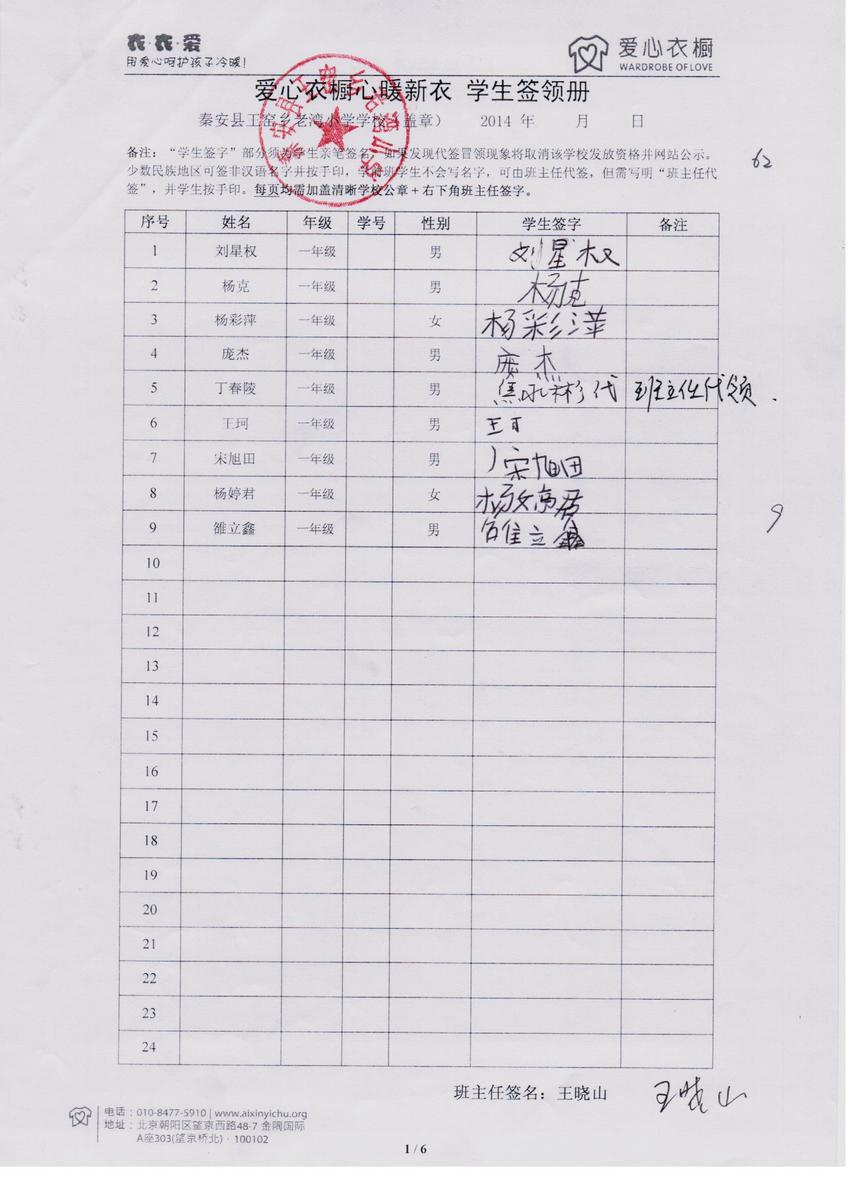 衣·衣·爱
用爱心呵护孩子冷暖!
爱心衣橱
WARDROBE OF LOVE
爱心衣橱心暖新衣 学生签领册
秦安县王窑乡老湾小学学校(盖章) 2014 年 月 日
备注：“学生签字”部分须为学生亲笔签名，如果发现代签冒领现象将取消该学校发放资格并网站公示。
少数民族地区可签非汉语名字并按手印，学前班学生不会写名字，可由班主任代签，但需写明“班主任代
签”，并学生按手印。每页均需加盖清晰学校公章+右下角班主任签字。
62
序号 姓名 年级 学号 性别 学生签字 备注
1 刘星权 一年级 男 刘星权
2 杨克 一年级 男 杨克
3 杨彩萍 一年级 女 杨彩萍
4 庞杰 一年级 男 庞杰
5 丁春陵 一年级 男 代 班主任代领.
6 王珂 一年级 男 王可
7 宋旭田 一年级 男 宋旭田
8 杨婷君 一年级 女 杨婷君
9 雒立鑫 一年级 男 雒立鑫
9
10
11
12
13
14
15
16
17
18
19
20
21
22
23
24
班主任签名：王晓山 王晓山
电话：010-8477-5910 | www.aixinyichu.org
地址：北京朝阳区望京西路48-7 金隅国际
A座303(望京桥北)·100102
1 / 6